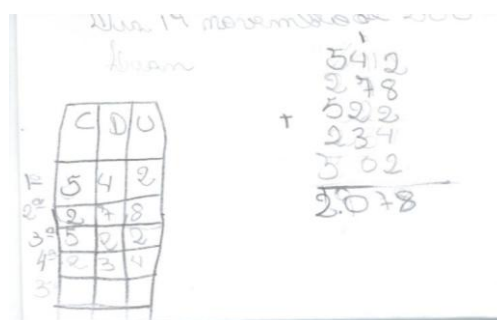 14 novembro de
Luan
C D U
1º 5 4 2
2º 2 7 8
3º 5 2 2
4º 2 3 4
5
1
5412
278
+ 522
234
502
2.078